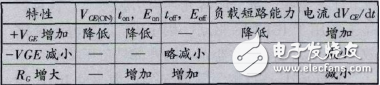 特性 VGE(ON) ton, Eon toff, Eoff 负载短路能力 电流 dVCE/dt
+VGE 增加 降低 降低 — 降低 增加
-VGE 减小 — — 略减小 —
RG 增大 — 增加 增加 — 减小
电子发烧友